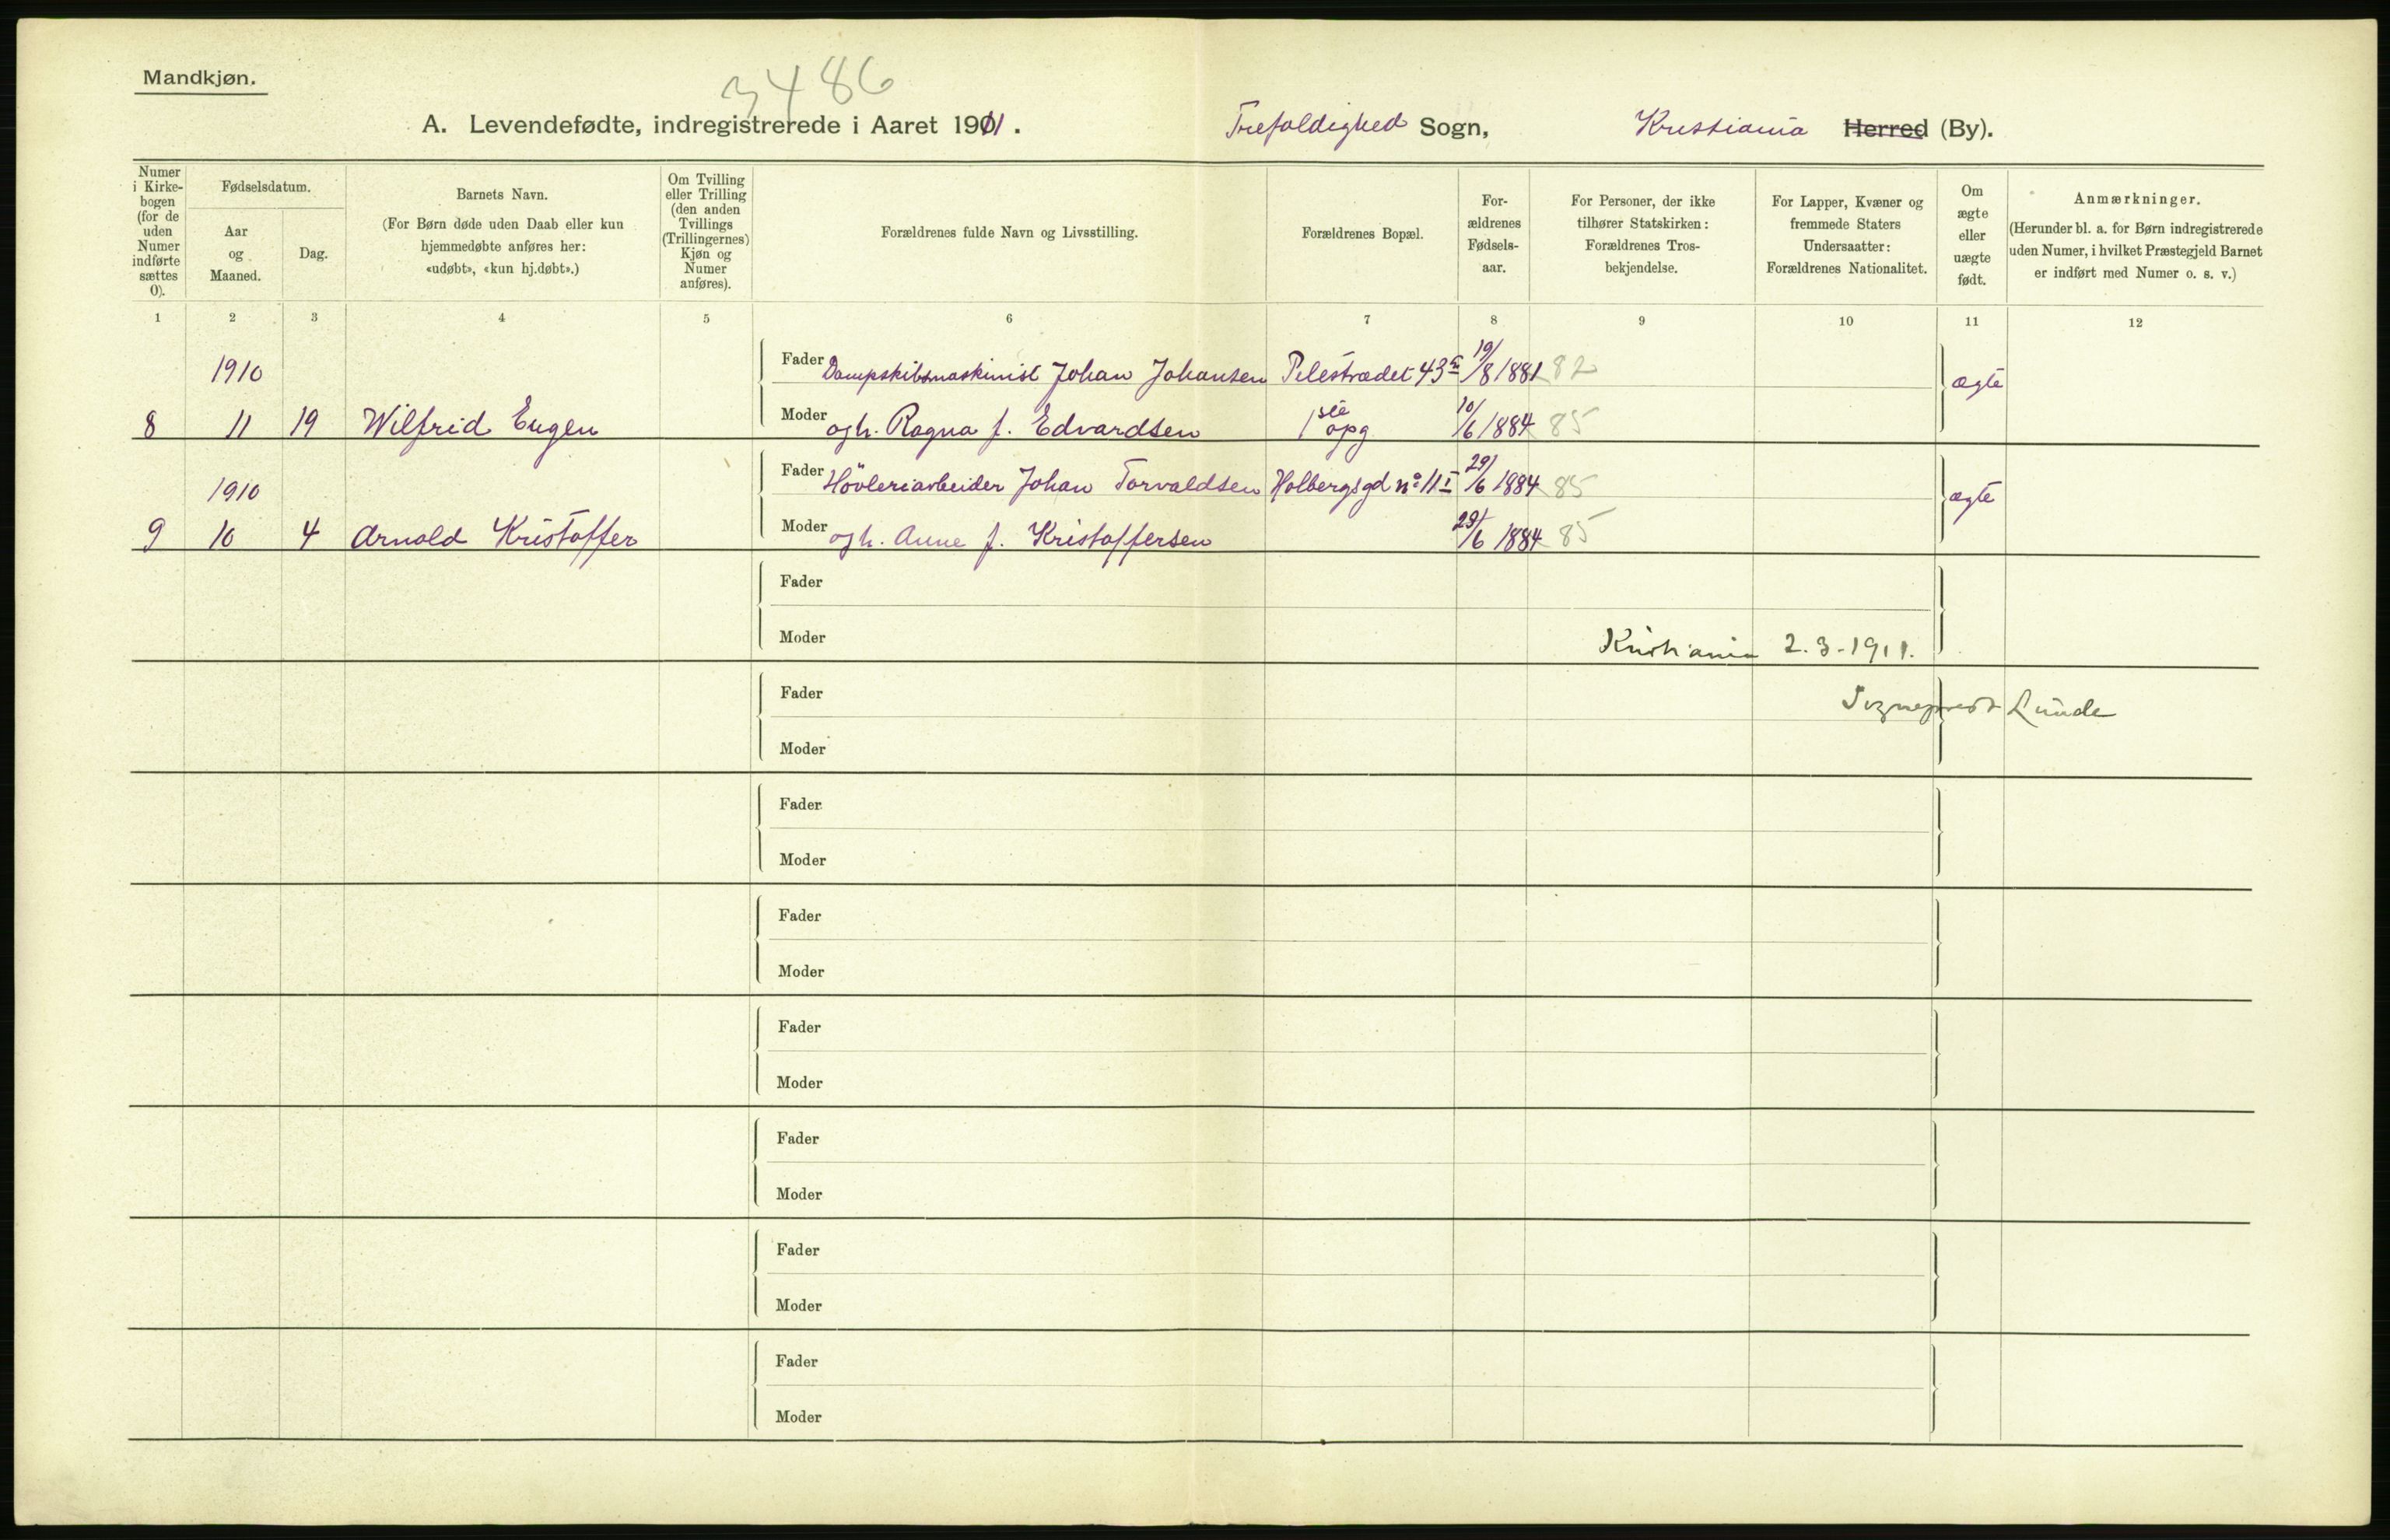 Mandkjøn.
3486
A. Levendefødte, indregistrerede i Aaret 1911.
Trefoldighed Sogn, Kristiania Herred (By).
Numer i Kirkebogen (for de uden Numer indførte sættes 0).
Fødselsdatum.
Aar og Maaned.
Dag.
Barnets Navn.
(For Børn døde uden Daab eller kun
hjemmedøbte anføres her:
«udøbt», «kun hj.døbt».)
Om Tvilling
eller Trilling
(den anden
Tvillings
(Trillingernes)
Kjøn og
Numer
anføres).
Forældrenes fulde Navn og Livsstilling.
Forældrenes Bopæl.
For-
ældrenes
Fødsels-
aar.
For Personer, der ikke
tilhører Statskirken:
Forældrenes Tros-
bekjendelse.
For Lapper, Kvæner og
fremmede Staters
Undersaatter:
Forældrenes Nationalitet.
Om
ægte
eller
uægte
født.
Anmærkninger.
(Herunder bl. a. for Børn indregistrerede
uden Numer, i hvilket Præstegjeld Barnet
er indført med Numer o. s. v.)
1 2 3 4 5 6 7 8 9 10 11 12
1910 Fader Dampskibsmaskinist Johan Johansen Pilestrædet 43 19/8 1881 82 ægte
8 11 19 Wilfrid Eugen Moder og h. Ragna f. Edvardsen 1ste opg 10/6 1884 85
1910 Fader Høvleriarbeider Johan Torvaldsen Holbergsgd nº 11 I 29/6 1884 85 ægte
9 10 4 Arnold Kristoffer Moder og h. Anne f. Kristoffersen 29/6 1884 85
Fader
Moder Kristiania 2.3.-1911.
Fader Sogneprest Lunde
Moder
Fader
Moder
Fader
Moder
Fader
Moder
Fader
Moder
Fader
Moder
Fader
Moder